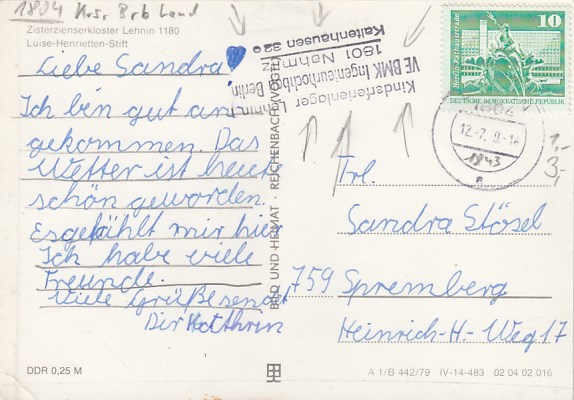 1804 Krs. Brb Land
Zisterzienserkloster Lehnin 1180
Luise-Henrietten-Stift
Liebe Sandra!
Ich bin gut an-
gekommen. Das
Wetter ist heute
schön geworden.
Es gefählt mir hier
Ich habe viele
Freunde.
Viele Grüße sendet
Dir Kathrin
DDR 0,25 M
BILD UND HEIMAT · REICHENBACH (VOGTL)
Kinderferienlager Lehnin
VE BMK Ingenieurhochbau Berlin
1801 Nahmitz
Kaltenhausen 320
10
Berlin-Rathausstraße
DEUTSCHE DEMOKRATISCHE REPUBLIK
12.-7.
1843
a
1,-
3,-
Frl.
Sandra Stösel
759 Spremberg
Heinrich-H- Weg 17
A 1/B 442/79 IV-14-483 02 04 02 016